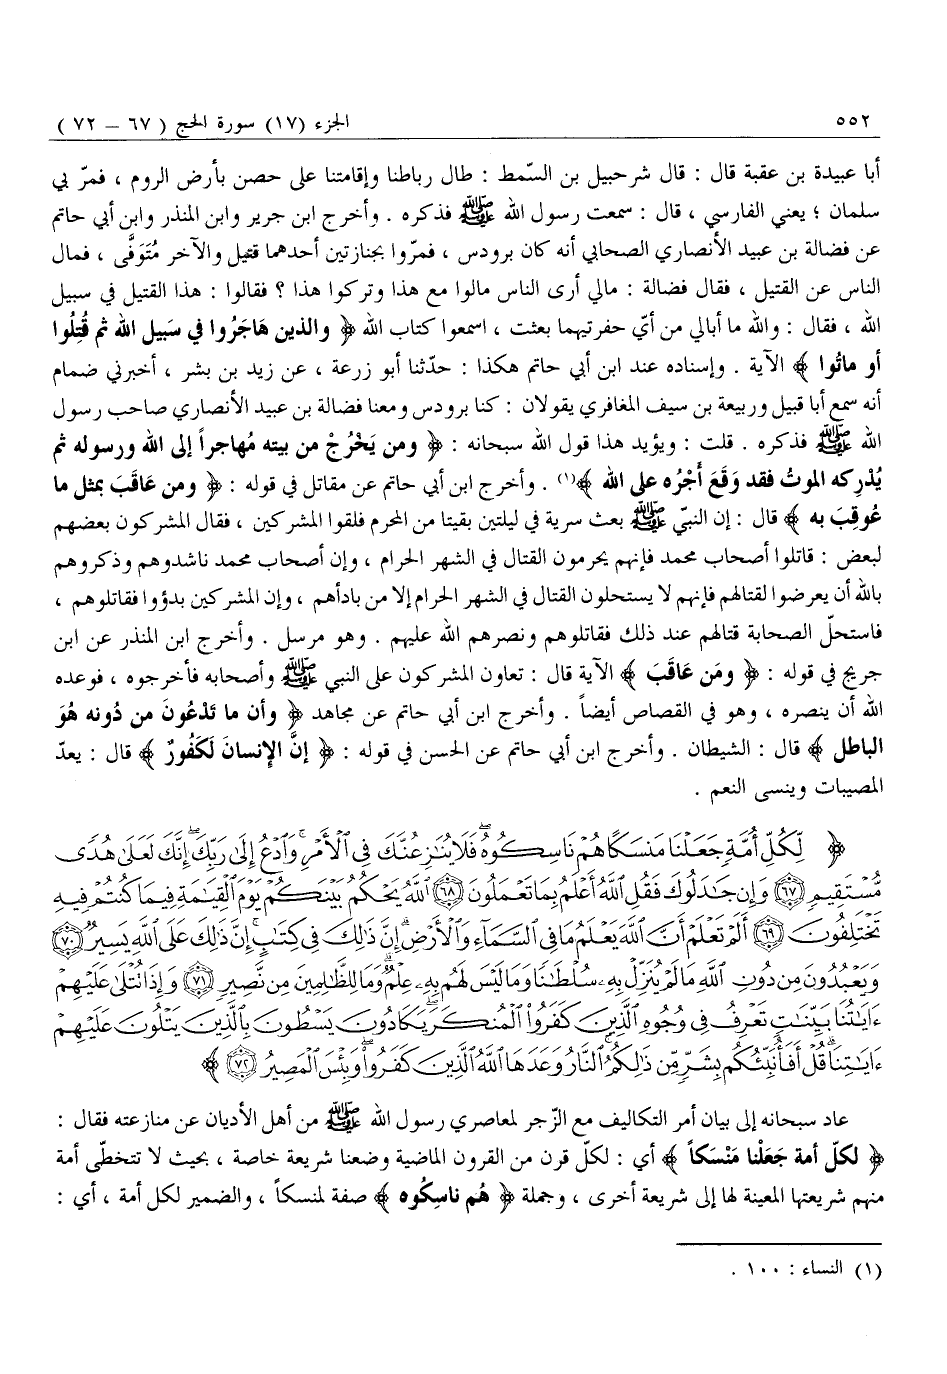 ٥٥٢ الجزء (١٧) سورة الحج ( ٦٧ – ٧٢ )
أبا عبيدة بن عقبة قال : قال شرحبيل بن السّمط : طال رباطنا وإقامتنا على حصن بأرض الروم ، فمرّ بي
سلمان ؛ يعني الفارسي ، قال : سمعت رسول الله ﷺ فذكره . وأخرج ابن جرير وابن المنذر وابن أبي حاتم
عن فضالة بن عبيد الأنصاري الصحابي أنه كان برودس ، فمرّوا بجنازتين أحدهما قتيل والآخر مُتَوَفَّى ، فمال
الناس عن القتيل ، فقال فضالة : مالي أرى الناس مالوا مع هذا وتركوا هذا ؟ فقالوا : هذا القتيل في سبيل
الله ، فقال : والله ما أبالي من أيّ حفرتيهما بعثت ، اسمعوا كتاب الله ﴿ والذين هَاجَرُوا في سَبيل الله ثم قُتِلُوا
أو ماتُوا ﴾ الآية . وإسناده عند ابن أبي حاتم هكذا : حدّثنا أبو زرعة ، عن زيد بن بشر ، أخبرني ضمام
أنه سمع أبا قبيل وربيعة بن سيف المغافري يقولان : كنا برودس ومعنا فضالة بن عبيد الأنصاري صاحب رسول
الله ﷺ فذكره . قلت : ويؤيد هذا قول الله سبحانه : ﴿ ومن يَخْرُجْ من بيته مُهاجراً إلى الله ورسوله ثم
يُدْرِكه الموتُ فقد وَقَعَ أَجْرُه على الله ﴾(١) . وأخرج ابن أبي حاتم عن مقاتل في قوله : ﴿ ومن عَاقَبَ بمثل ما
عُوقِبَ به ﴾ قال : إن النبيّ ﷺ بعث سرية في ليلتين بقيتا من المحرم فلقوا المشركين ، فقال المشركون بعضهم
لبعض : قاتلوا أصحاب محمد فإنهم يحرمون القتال في الشهر الحرام ، وإن أصحاب محمد ناشدوهم وذكروهم
بالله أن يعرضوا لقتالهم فإنهم لا يستحلون القتال في الشهر الحرام إلا من بادأهم ، وإن المشركين بدؤوا فقاتلوهم ،
فاستحلّ الصحابة قتالهم عند ذلك فقاتلوهم ونصرهم الله عليهم . وهو مرسل . وأخرج ابن المنذر عن ابن
جريج في قوله : ﴿ ومَن عَاقَبَ ﴾ الآية قال : تعاون المشركون على النبي ﷺ وأصحابه فأخرجوه ، فوعده
الله أن ينصره ، وهو في القصاص أيضاً . وأخرج ابن أبي حاتم عن مجاهد ﴿ وأن ما تَدْعُونَ من دُونه هُوَ
الباطل ﴾ قال : الشيطان . وأخرج ابن أبي حاتم عن الحسن في قوله : ﴿ إنَّ الإنسانَ لَكَفُورٌ ﴾ قال : يعدّ
المصيبات وينسى النعم .
﴿ لِّكُلِّ أُمَّةٍ جَعَلْنَا مَنسَكًا هُمْ نَاسِكُوهُ ۖ فَلَا يُنَٰزِعُنَّكَ فِى ٱلْأَمْرِ ۚ وَٱدْعُ إِلَىٰ رَبِّكَ ۖ إِنَّكَ لَعَلَىٰ هُدًى
مُّسْتَقِيمٍ ﴿٦٧﴾ وَإِن جَٰدَلُوكَ فَقُلِ ٱللَّهُ أَعْلَمُ بِمَا تَعْمَلُونَ ﴿٦٨﴾ ٱللَّهُ يَحْكُمُ بَيْنَكُمْ يَوْمَ ٱلْقِيَٰمَةِ فِيمَا كُنتُمْ فِيهِ
تَخْتَلِفُونَ ﴿٦٩﴾ أَلَمْ تَعْلَمْ أَنَّ ٱللَّهَ يَعْلَمُ مَا فِى ٱلسَّمَآءِ وَٱلْأَرْضِ ۗ إِنَّ ذَٰلِكَ فِى كِتَٰبٍ ۚ إِنَّ ذَٰلِكَ عَلَى ٱللَّهِ يَسِيرٌ ﴿٧٠﴾
وَيَعْبُدُونَ مِن دُونِ ٱللَّهِ مَا لَمْ يُنَزِّلْ بِهِۦ سُلْطَٰنًا وَمَا لَيْسَ لَهُم بِهِۦ عِلْمٌ ۗ وَمَا لِلظَّٰلِمِينَ مِن نَّصِيرٍ ﴿٧١﴾ وَإِذَا تُتْلَىٰ عَلَيْهِمْ
ءَايَٰتُنَا بَيِّنَٰتٍ تَعْرِفُ فِى وُجُوهِ ٱلَّذِينَ كَفَرُوا۟ ٱلْمُنكَرَ ۖ يَكَادُونَ يَسْطُونَ بِٱلَّذِينَ يَتْلُونَ عَلَيْهِمْ
ءَايَٰتِنَا ۗ قُلْ أَفَأُنَبِّئُكُم بِشَرٍّ مِّن ذَٰلِكُمُ ۗ ٱلنَّارُ وَعَدَهَا ٱللَّهُ ٱلَّذِينَ كَفَرُوا۟ ۖ وَبِئْسَ ٱلْمَصِيرُ ﴿٧٢﴾ ﴾
عاد سبحانه إلى بيان أمر التكاليف مع الزّجر لمعاصري رسول الله ﷺ من أهل الأديان عن منازعته فقال :
﴿ لكلّ أمة جَعَلْنا مَنْسَكاً ﴾ أي : لكلّ قرن من القرون الماضية وضعنا شريعة خاصة ، بحيث لا تتخطّى أمة
منهم شريعتها المعينة لها إلى شريعة أخرى ، وجملة ﴿ هُم ناسِكُوه ﴾ صفة لمنسكاً ، والضمير لكل أمة ، أي :
(١) النساء : ١٠٠ .